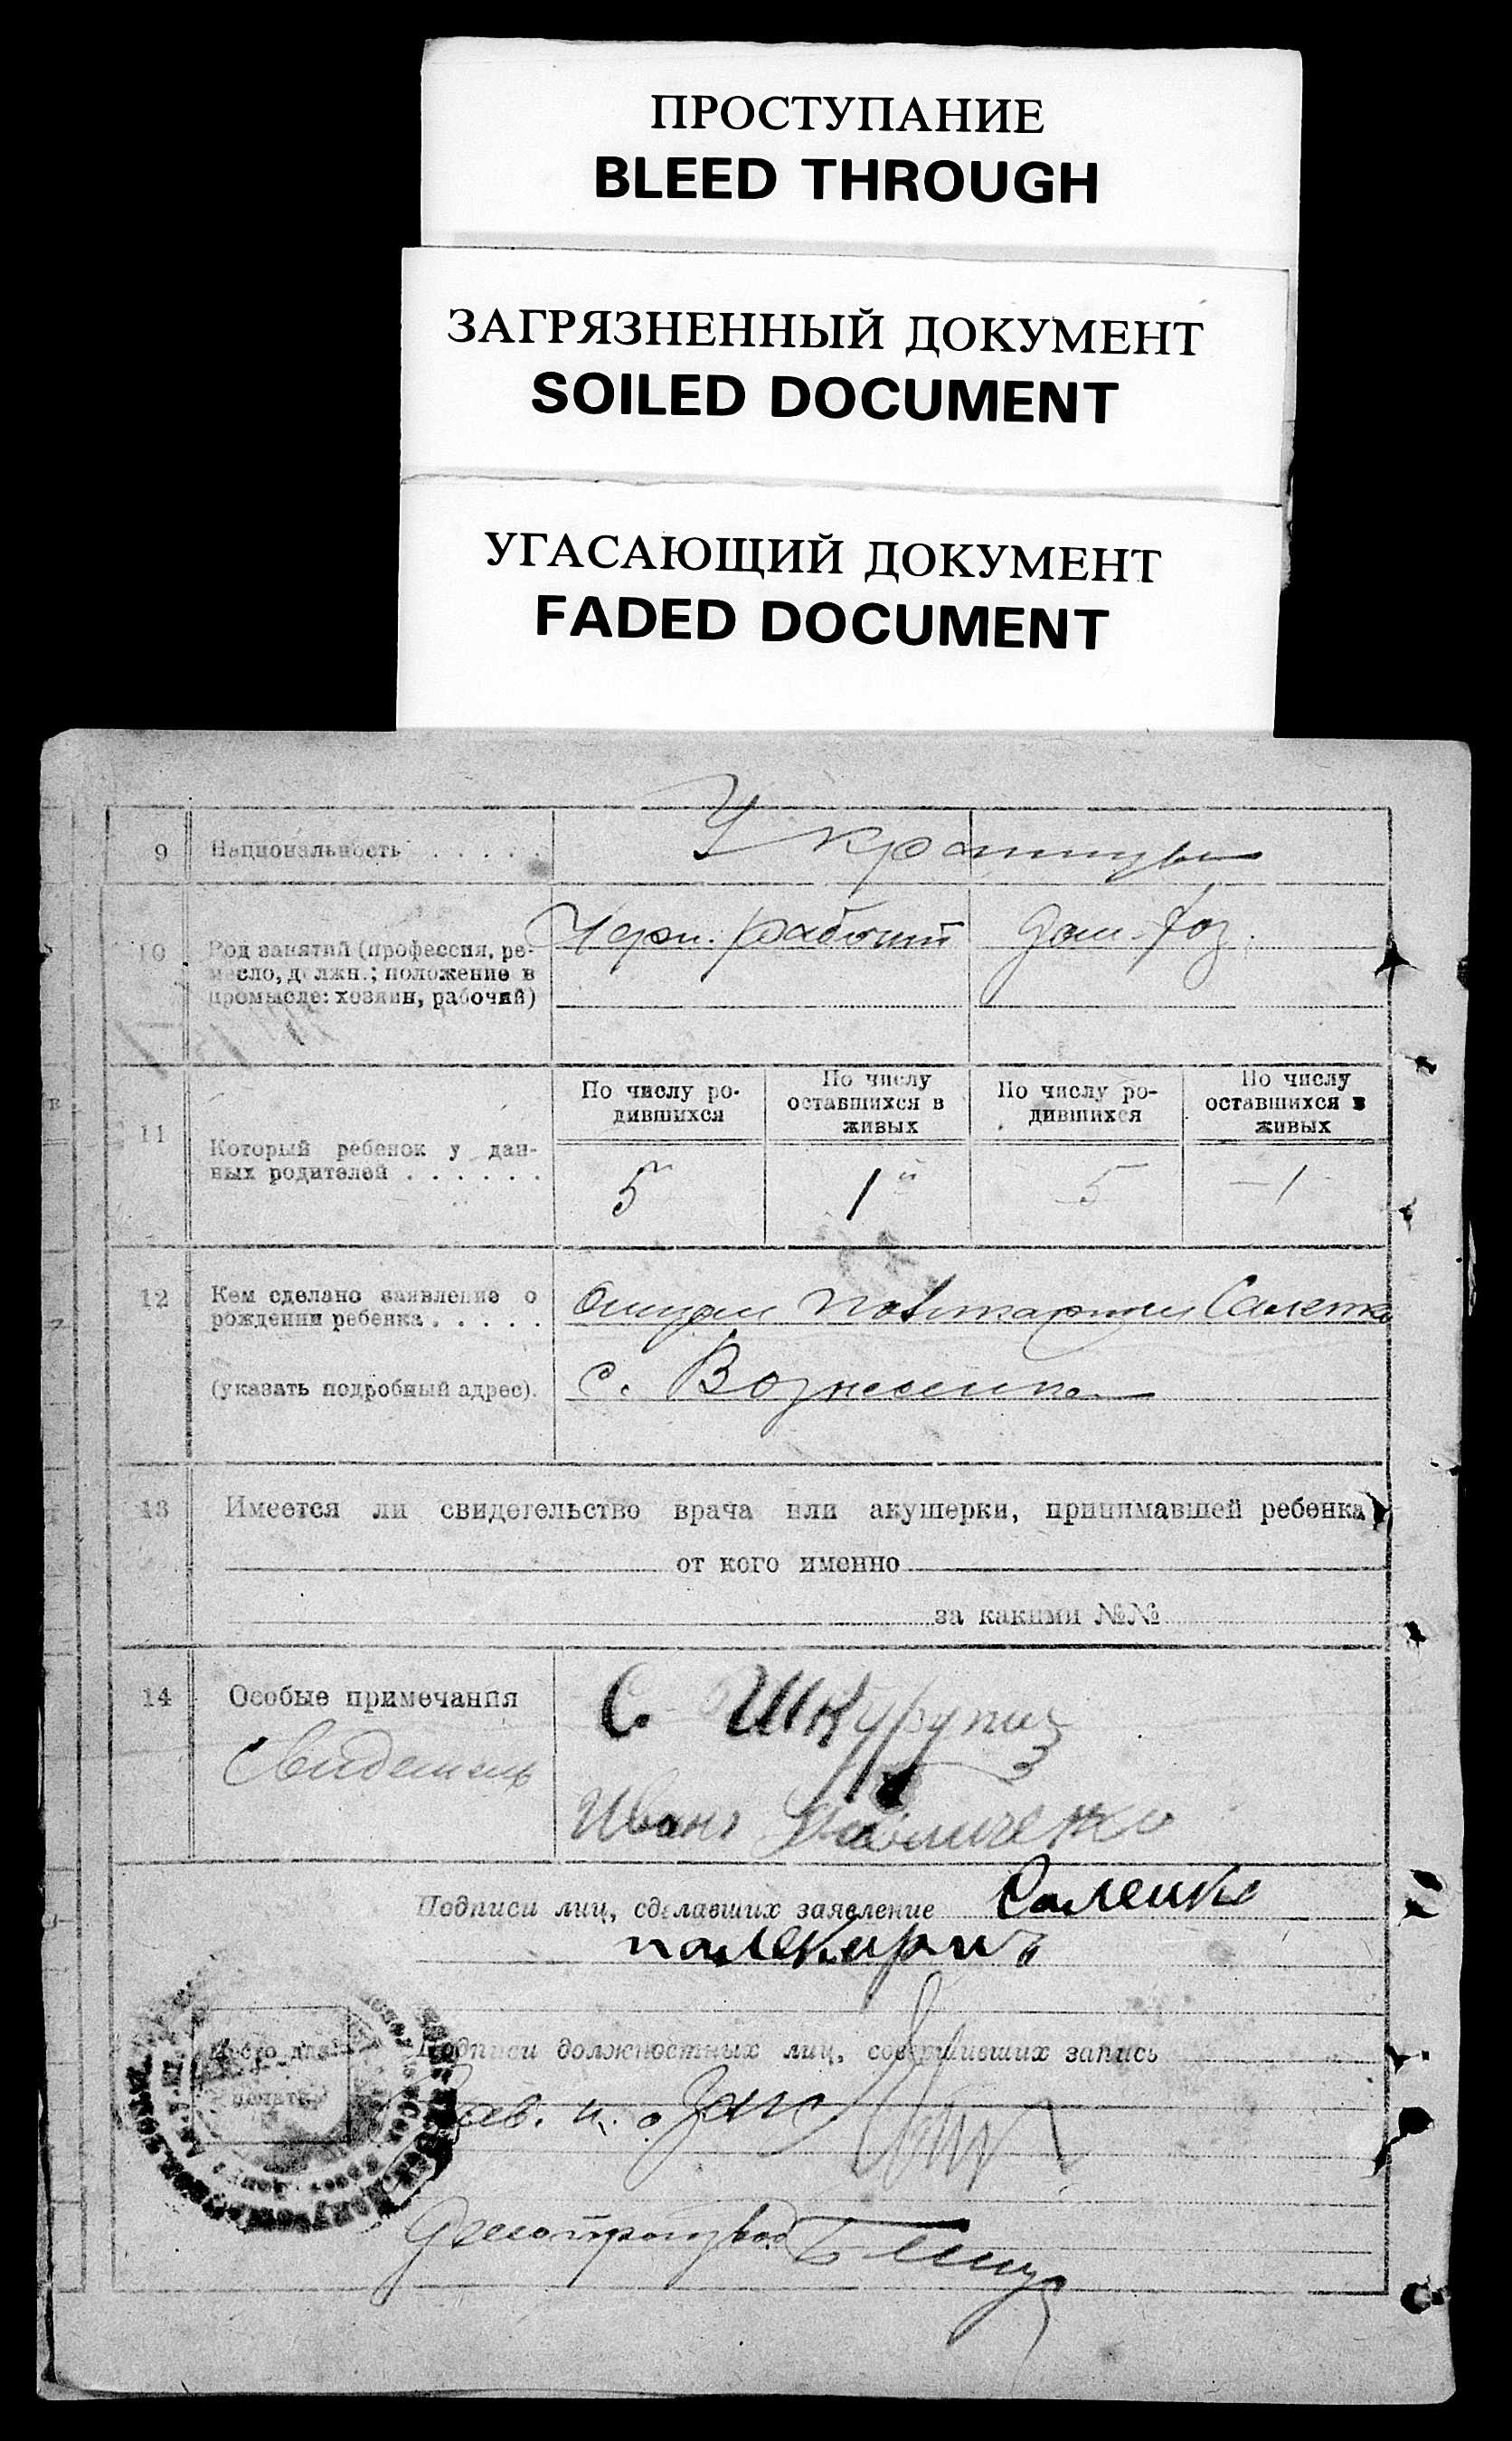 ПРОСТУПАНИЕ
BLEED THROUGH
ЗАГРЯЗНЕННЫЙ ДОКУМЕНТ
SOILED DOCUMENT
УГАСАЮЩИЙ ДОКУМЕНТ
FADED DOCUMENT
9 Национальность . . . . . Украинцы
10 Род занятий (профессия, ре- Черн. рабочий Дом-хоз.
месло, должн.; положение в
промысле: хозяин, рабочий)
По числу ро- По числу По числу ро- По числу
дившихся оставшихся в дившихся оставшихся в
живых живых
11 Который ребенок у дан-
ных родителей . . . . . . 5 1й 5 1
12 Кем сделано заявление о
рождении ребенка . . . . . Отцом Саленко
(указать подробный адрес). с. Вознесенка
13 Имеется ли свидетельство врача или акушерки, принимавшей ребенка
от кого именно
за какими №№
14 Особые примечания С. Шкурупий
Свидетель
Иван
Подписи лиц, сделавших заявление Саленко
Место для Подписи должностных лиц, совершивших запись
печати
Зав. п. о Загс
Делопроизвод